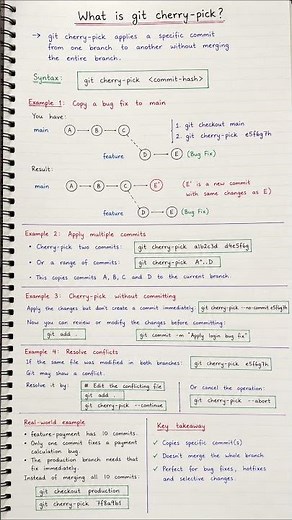 What is git cherry-pick?
→ git cherry-pick applies a specific commit
from one branch to another without merging
the entire branch.
Syntax:
git cherry-pick <commit-hash>
Example 1: Copy a bug fix to main
You have:
main A → B → C
1. git checkout main
2. git cherry-pick e5f6g7h
feature D → E (Bug Fix)
Result:
main A → B → C → E'
(E' is a new commit
with same changes as E)
feature D → E (Bug Fix)
Example 2: Apply multiple commits
• Cherry-pick two commits:
git cherry-pick a1b2c3d d4e5f6g
• Or a range of commits:
git cherry-pick A^..D
• This copies commits A, B, C and D to the current branch.
Example 3: Cherry-pick without committing
Apply the changes but don't create a commit immediately:
git cherry-pick --no-commit e5f6g7h
Now you can review or modify the changes before committing:
git add .
git commit -m "Apply login bug fix"
Example 4: Resolve conflicts
If the same file was modified in both branches:
git cherry-pick e5f6g7h
Git may show a conflict.
Resolve it by:
# Edit the conflicting file
git add .
git cherry-pick --continue
Or cancel the operation:
git cherry-pick --abort
Real-world example
• feature-payment has 10 commits.
• Only one commit fixes a payment
calculation bug.
• The production branch needs that
fix immediately.
Instead of merging all 10 commits:
git checkout production
git cherry-pick 7f8a9b1
Key takeaway
✓ Copies specific commit(s)
✓ Doesn't merge the whole branch
✓ Perfect for bug fixes, hotfixes
and selective changes.